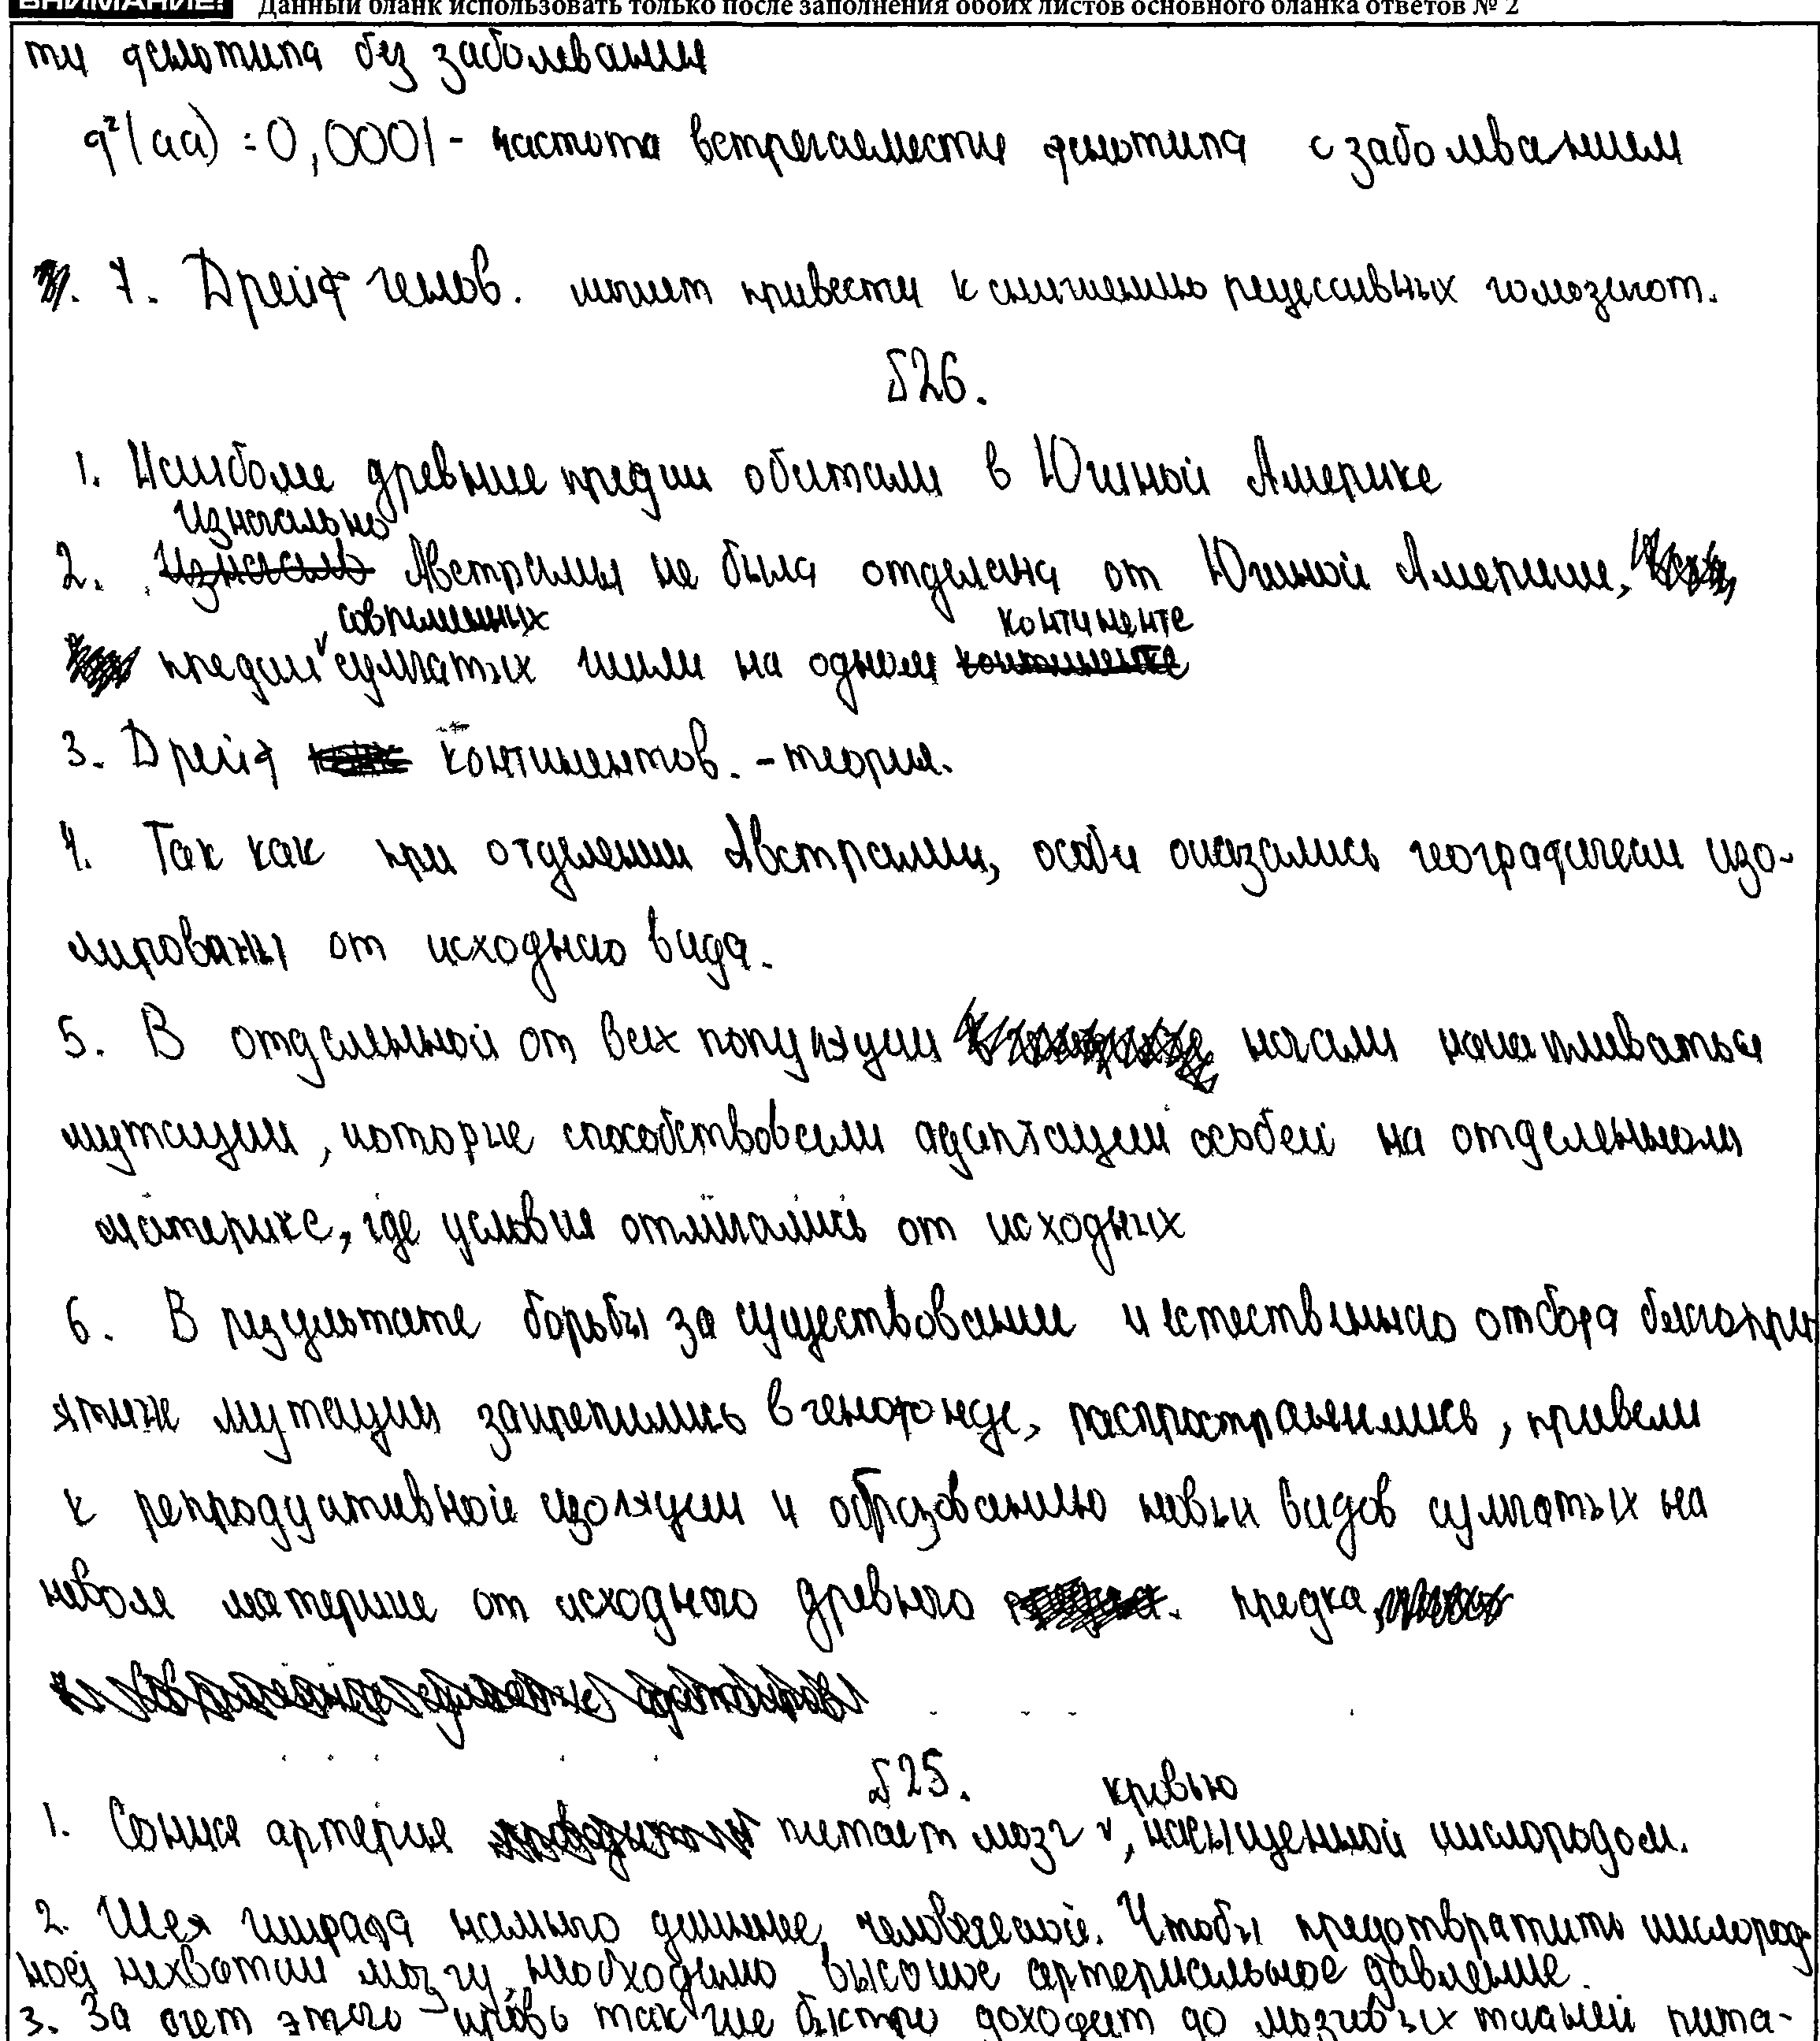 ВНИМАНИЕ! Данный бланк использовать только после заполнения обоих листов основного бланка ответов № 2
ти фенотипа без заболевания
q²(aa) = 0,0001 - частота встречаемости фенотипа с заболеванием
7. Дрейф генов. может привести к снижению рецессивных гомозигот.
§26.
1. Наиболее древние предки обитали в Южной Америке
2. Изначально Австралия не была отделена от Южной Америки,
предки современных сумчатых жили на одном континенте
3. Дрейф континентов. - теория.
4. Так как при отделении Австралии, особи оказались географически изо-
лированы от исходного вида.
5. В отделенной от всех популяции начали накапливаться
мутации, которые способствовали адаптации особей на отделенном
материке, где условия отличались от исходных
6. В результате борьбы за существование и естественного отбора благопри
ятные мутации закрепились в генофонде, распространились, привели
к репродуктивной изоляции и образованию новых видов сумчатых на
новом материке от исходного древнего предка,
§25.
1. Сонная артерия питает мозг кровью, насыщенной кислородом.
2. Шея жирафа намного длиннее человеческой. Чтобы предотвратить кислород
ной нехватки мозгу, необходимо высокое артериальное давление.
3. За счет этого кровь так же быстро доходит до мозговых тканей пита-